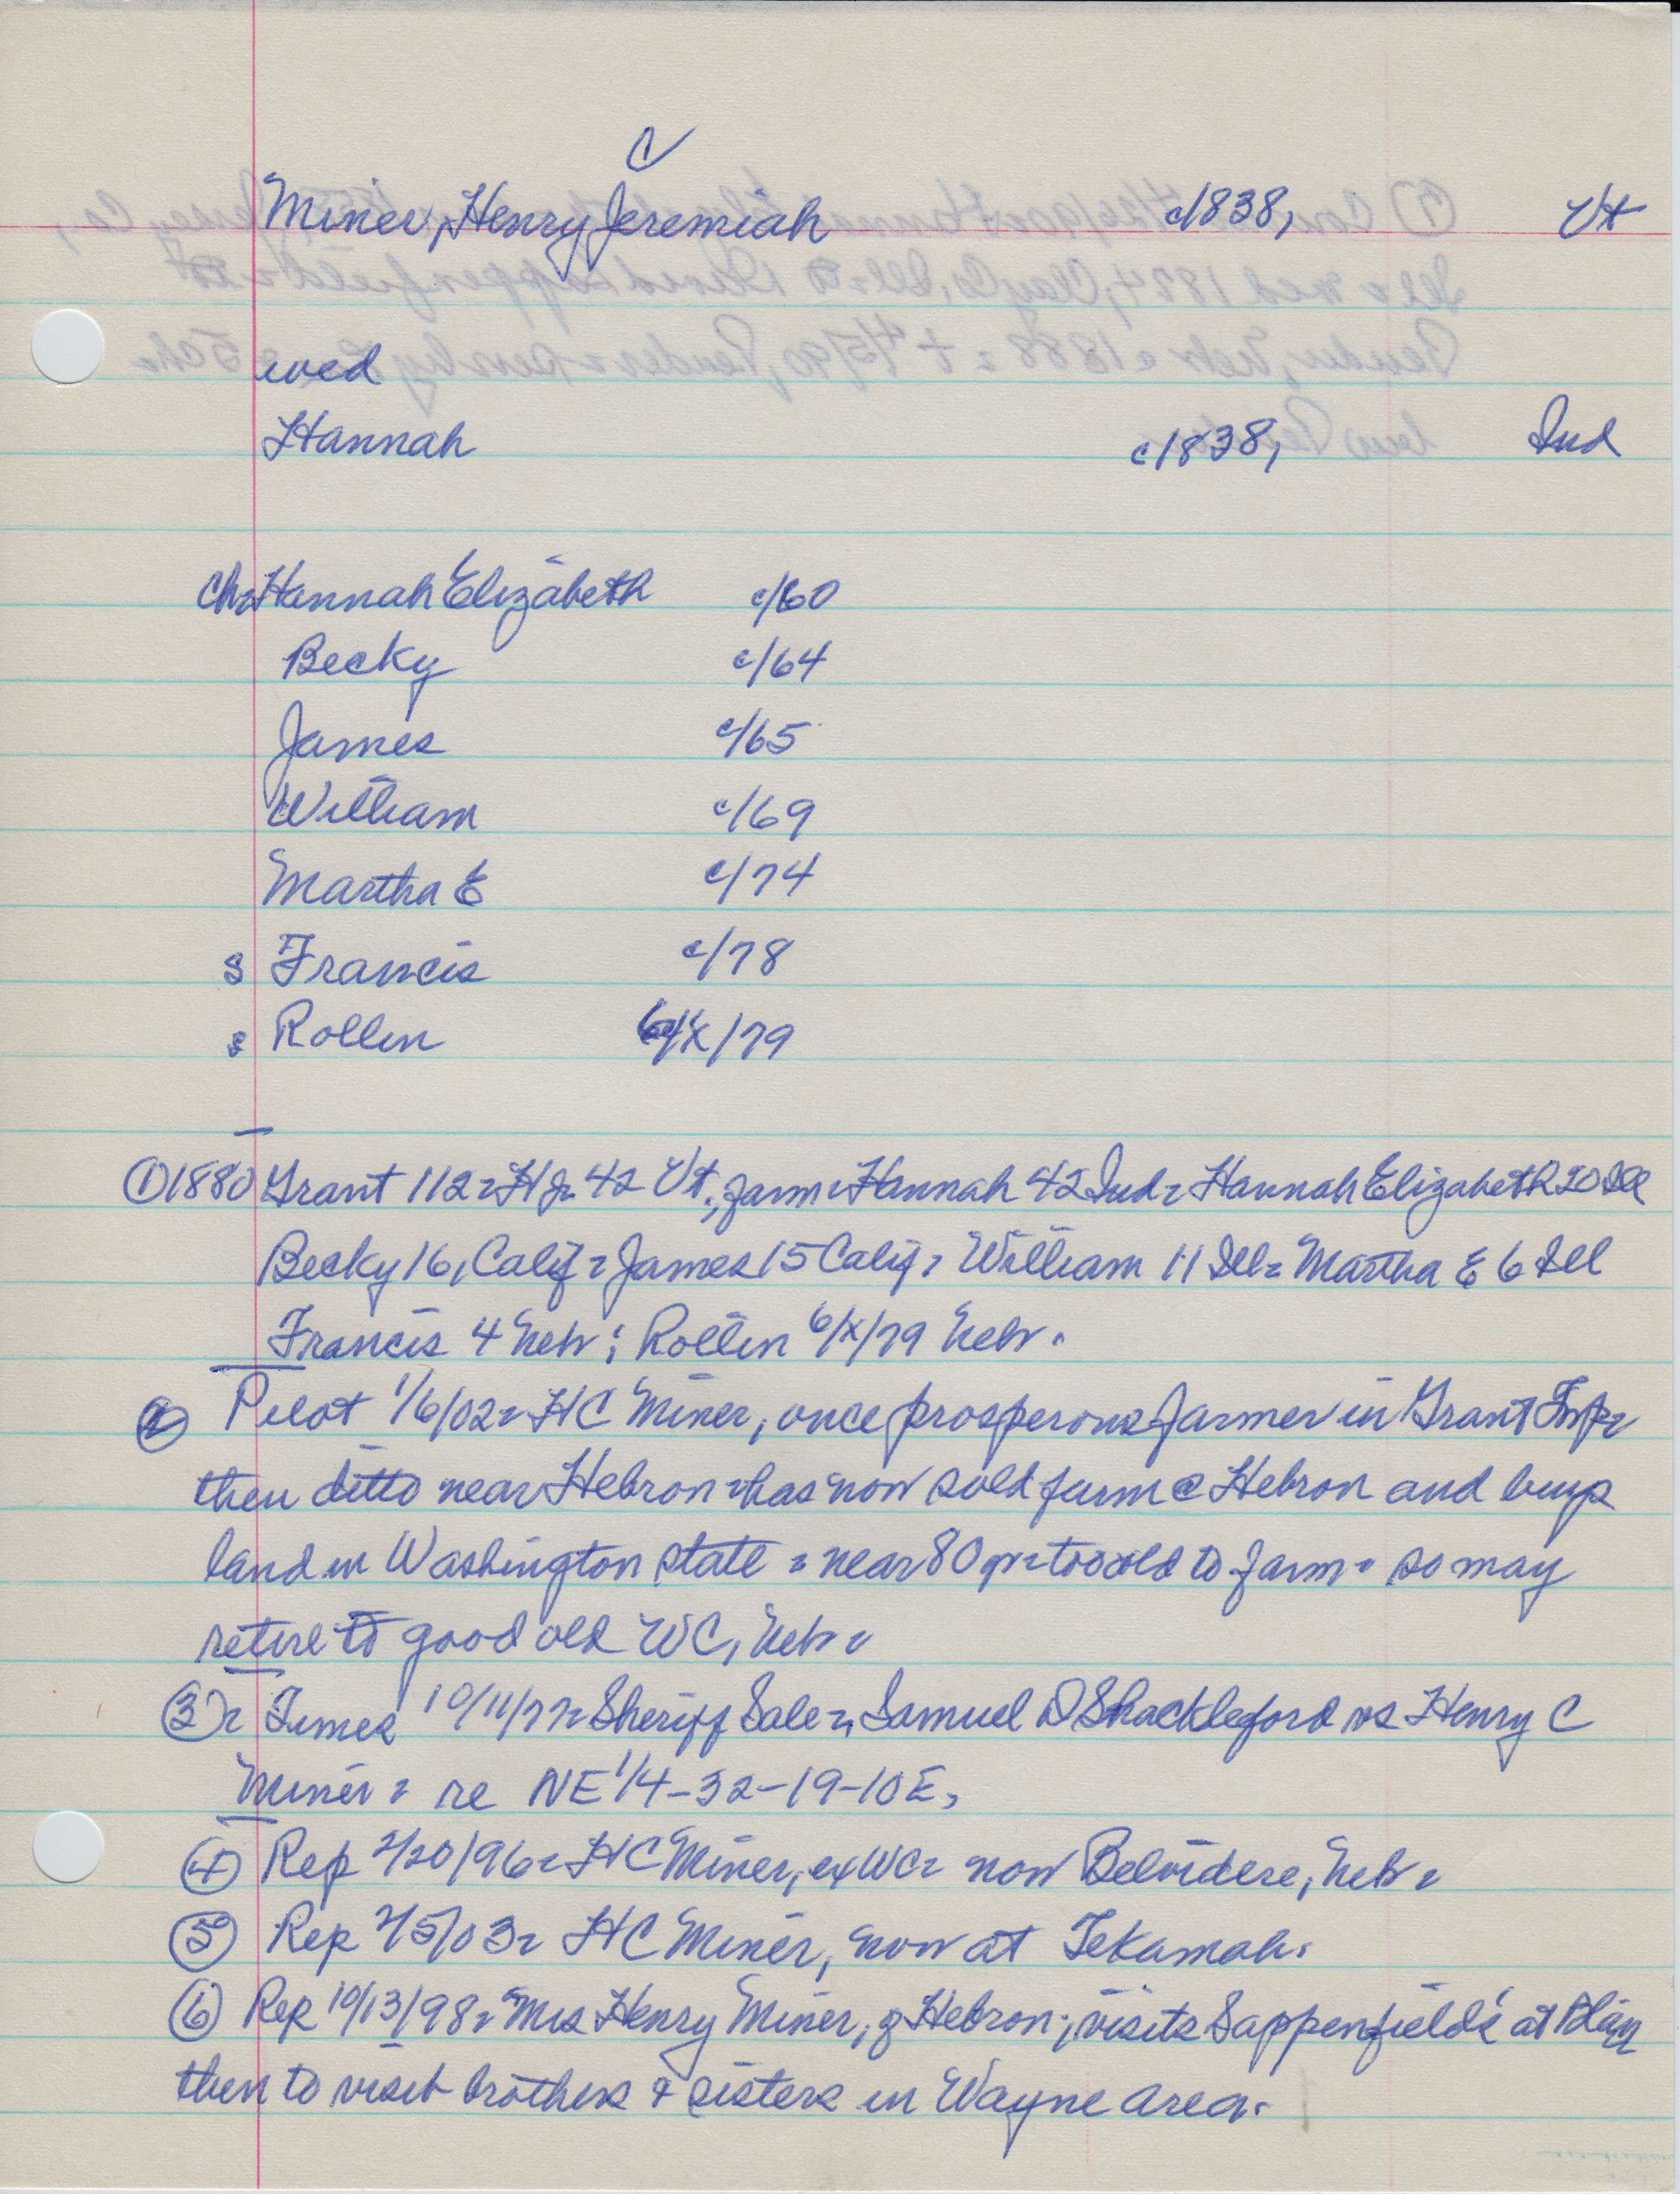 C
Miner, Henry Jeremiah c1838, Vt
wed
Hannah c1838, Ind
ch= Hannah Elizabeth c/60
Becky c/64
James c/65
William c/69
Martha E c/74
s Francis c/78
s Rollin 6/X/79
① 1880 Grant 112= HJ= 42 Vt., farm= Hannah 42 Ind= Hannah Elizabeth 20 Ill
Becky 16, Calif= James 15 Calif= William 11 Ill= Martha E 6 Ill
Francis 4 Nebr; Rollin 6/X/79 Nebr.
② Pilot 1/6/02= HC Miner, once prosperous farmer in Grant Twp=
then ditto near Hebron= has now sold farm @ Hebron and buys
land in Washington state = near 80 yr= too old to farm= so may
retire to good old WC, Nebr=
③= Times 10/11/77= Sheriff Sale=, Samuel D Shackleford vs Henry C
Miner= re NE 1/4-32-19-10E,
④ Rep 2/20/96= HC Miner, ex WC= now Belvidere, Nebr=
⑤ Rep 2/5/03= HC Miner, now at Tekamah.
⑥ Rep 10/13/98= Mrs Henry Miner, of Hebron; visits Sappenfields' at Blair
then to visit brothers & sisters in Wayne area.